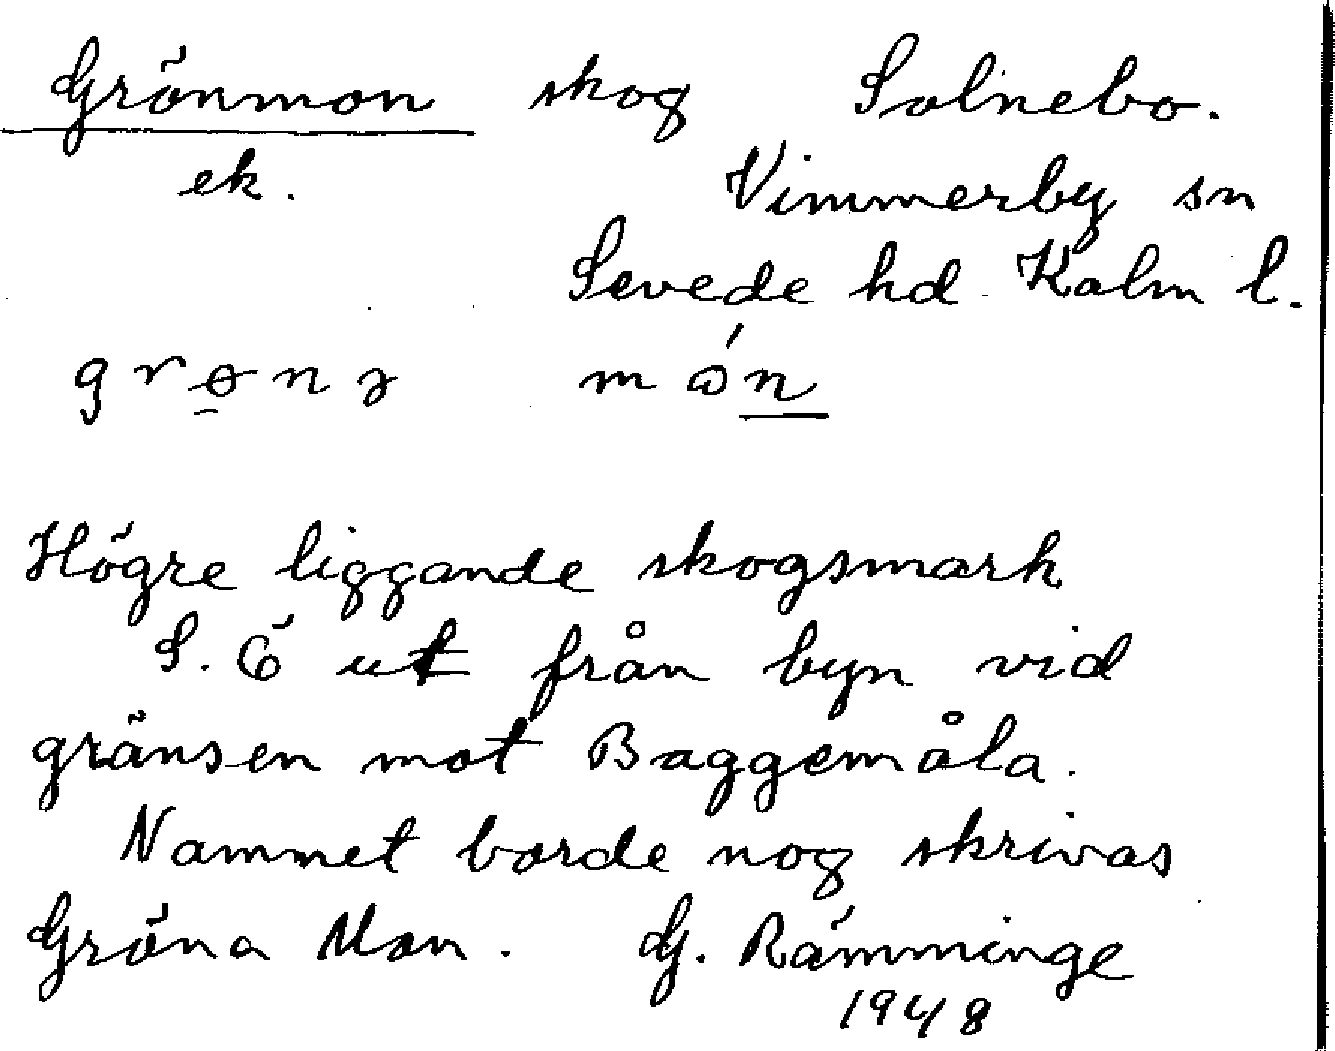 Grönmon skog Solnebo.
ek. Vimmerby sn
Sevede hd Kalm l.
grø̱nɂ mɷ́n
Högre liggande skogsmark
S. Ö ut från byn vid
gränsen mot Baggemåla.
Namnet borde nog skrivas
Gröna Mon. G. Rämminge
1948